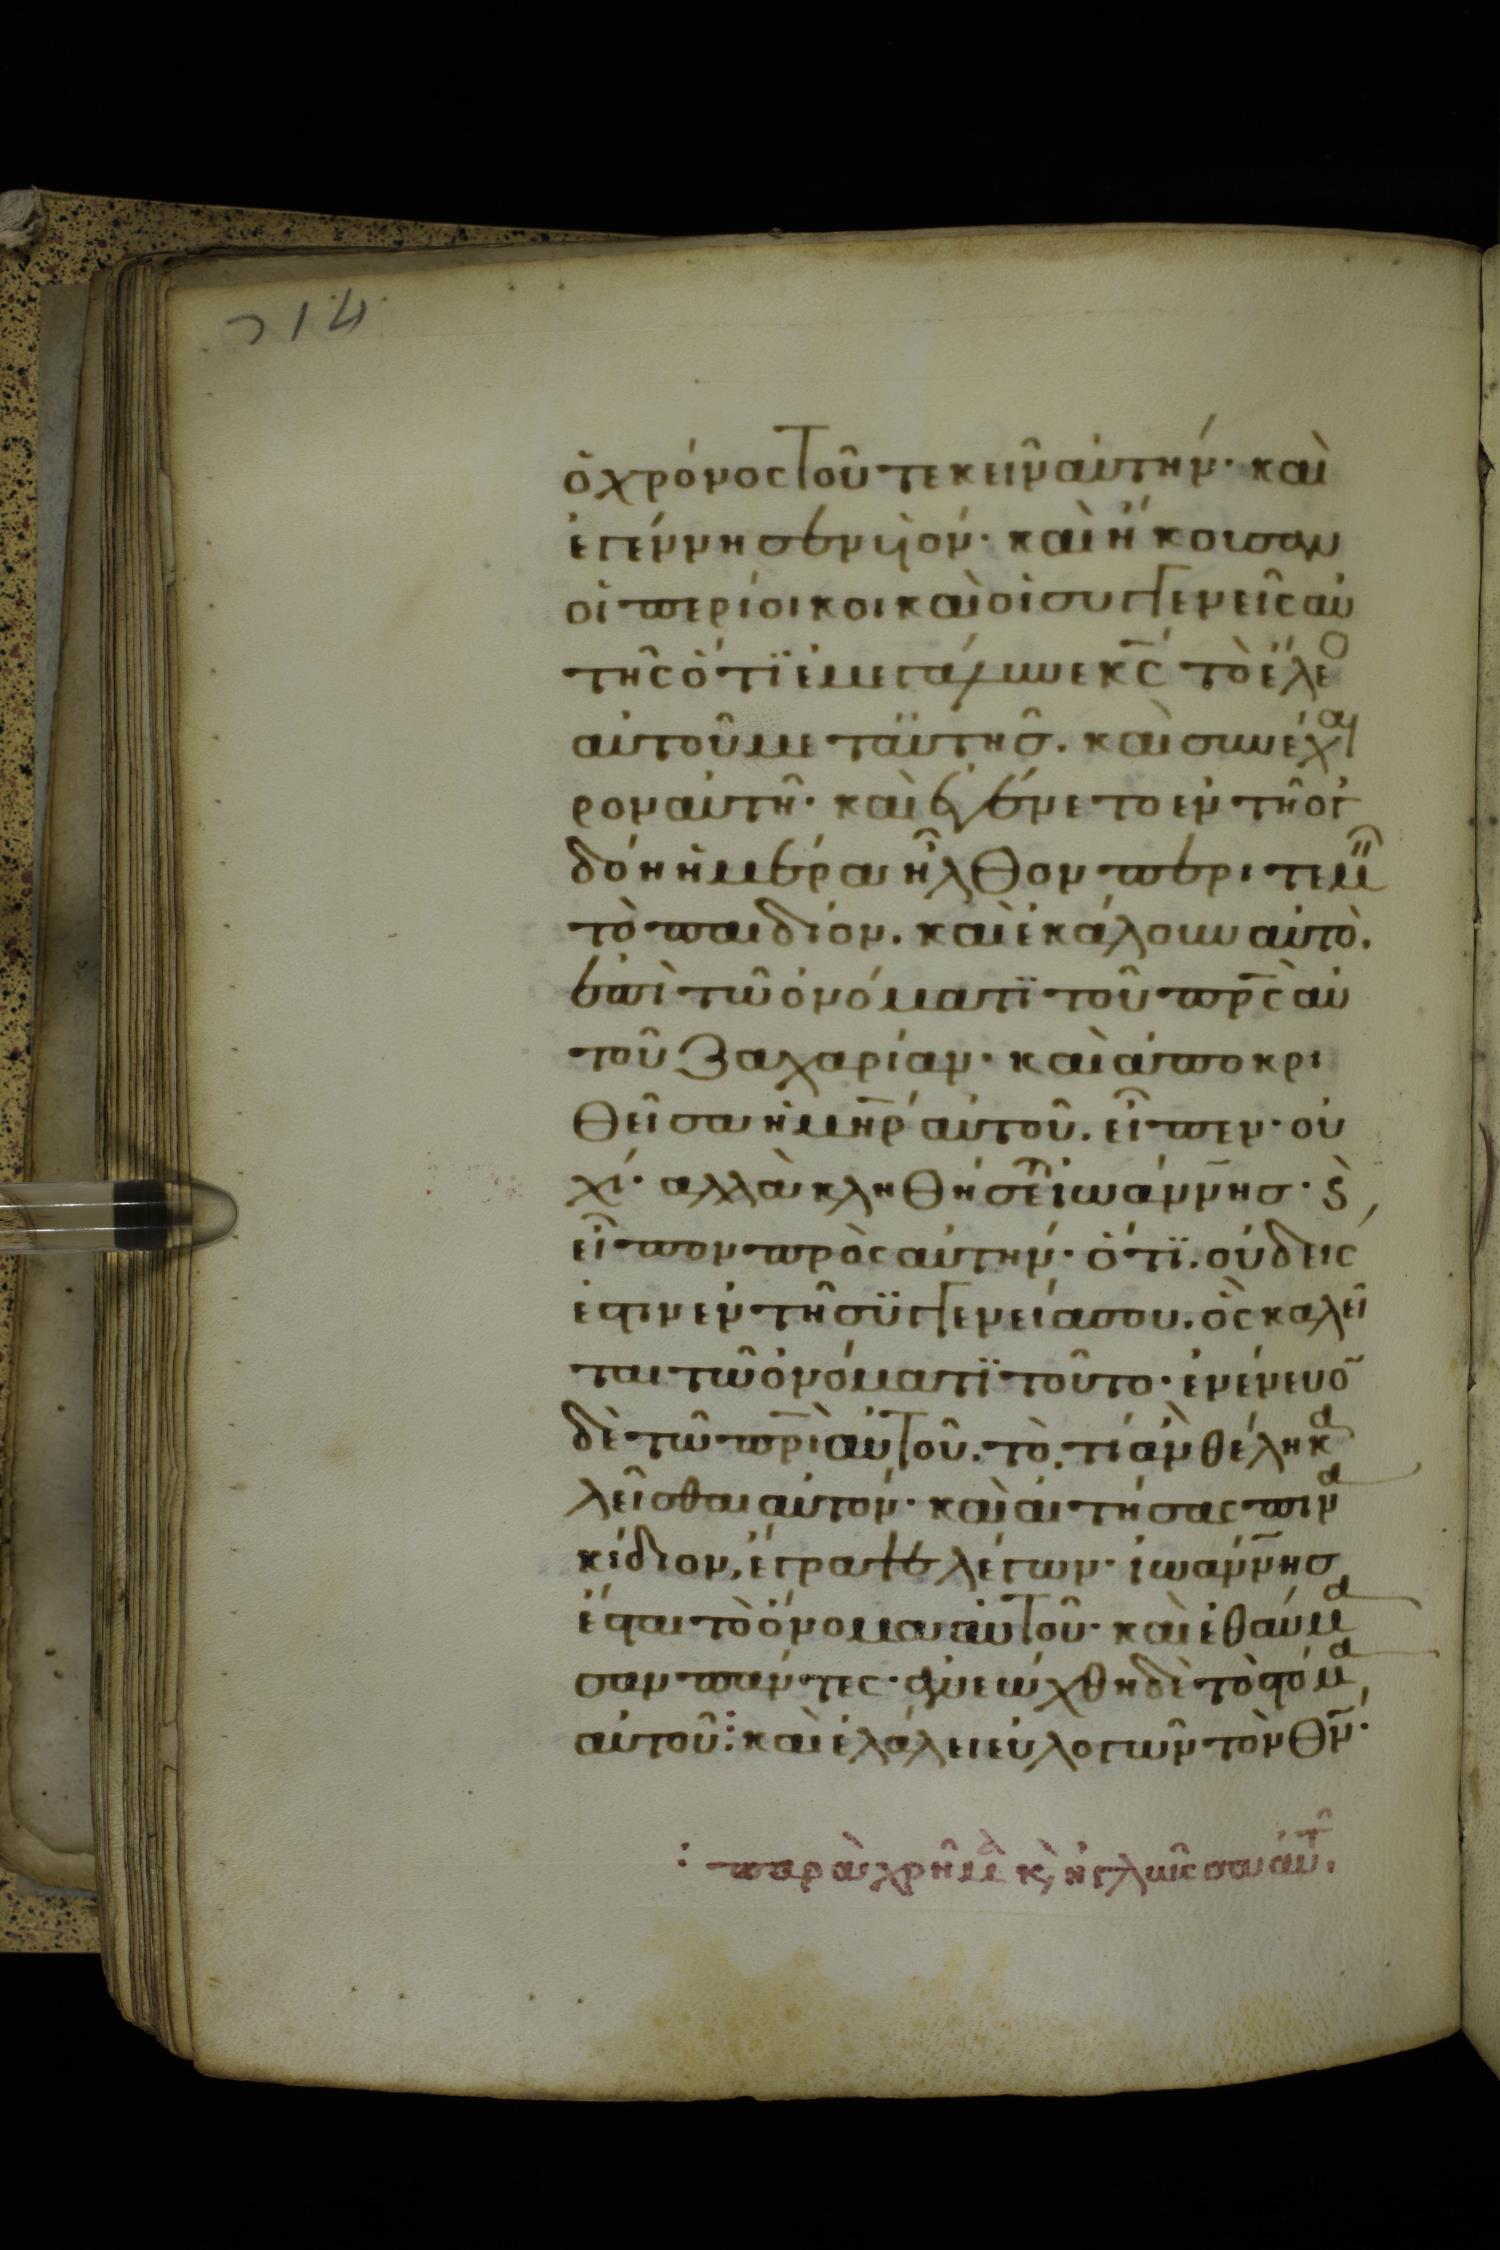 214
ὁ χρόνος τοῦ τεκεῖν αὐτήν· καὶ
ἐγέννησεν υἱόν· καὶ ἤκουσαν
οἱ περίοικοι καὶ οἱ συγγενεῖς αὐ
τῆς ὅτϊ ἐμεγάλυνε κ̅ς̅ τὸ ἔλεο
αὐτοῦ μετ᾽ αὐτῆσ. καὶ συνέχαι
ρον αὐτῆ· καὶ ἐγένετο ἐν τῆ ὀγ
δόη ἡμέρα ἦλθον περιτεμῆ
τὸ παιδίον. καὶ ἐκάλουν αὐτὸ.
ἐπὶ τῶ ὀνόματϊ τοῦ π̅ρ̅ς̅ αὐ
τοῦ Ζαχαρίαν· καὶ ἀποκρι
θεῖσα ἡ μ̅η̅ρ̅ αὐτοῦ. εἶπεν· οὐ
χί· αλλὰ κληθήσεται ἰωάννησ· ϗ
εἶπον πρὸς αὐτήν· ὅτϊ. οὐδείς
ἐστιν ἐν τῆ σϋγγενεία σου. ὃς καλεῖ
ται τῶ ὀνόματϊ τοῦτο· ἐνένευο̅
δὲ τῶ π̅ρ̅ι̅ αὐτοῦ. τὸ. τί ἀν θέλη κα
λεῖσθαι αὐτόν· καὶ αἰτήσας πινα
κίδιον, ἔγραψε λέγων· ἰωάννησ
ἔσται τὸ ὄνομα αὐτοῦ· καὶ ἐθαύμα
σαν πάντες· ἀνεώχθη δὲ τὸ στόμα
αὐτοῦ: καὶ ἐλάλει εὐλογῶν τὸν θ̅ν̅·
: παραχρῆμα κ, ἡ γλῶσσα αὐτοῦ.